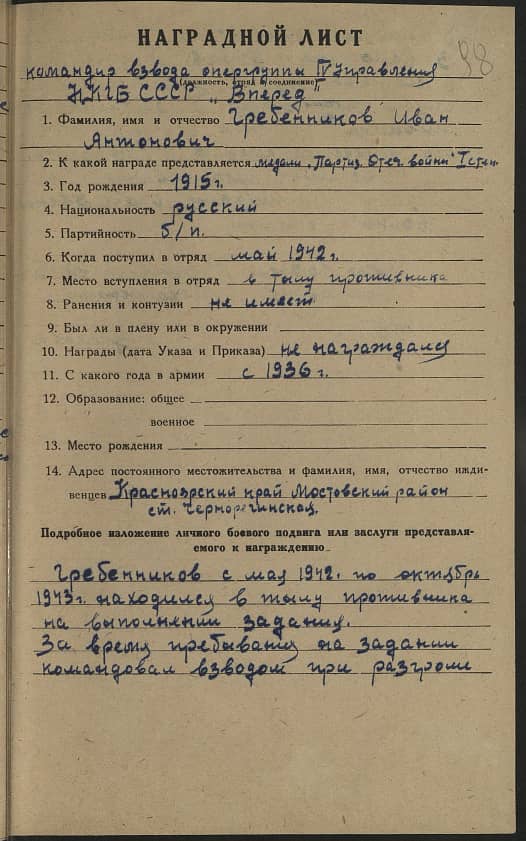 98
НАГРАДНОЙ ЛИСТ
командир взвода опергруппы IV Управления
(должность, отряд и соединение)
НКГБ СССР „Вперед"
1. Фамилия, имя и отчество Гребенников Иван
Антонович
2. К какой награде представляется медали „Партиз. Отеч. войны" I степ.
3. Год рождения 1915 г.
4. Национальность русский
5. Партийность б/п.
6. Когда поступил в отряд май 1942 г.
7. Место вступления в отряд в тылу противника
8. Ранения и контузии не имеет
9. Был ли в плену или в окружении
10. Награды (дата Указа и Приказа) не награждался
11. С какого года в армии с 1936 г.
12. Образование: общее
военное
13. Место рождения
14. Адрес постоянного местожительства и фамилия, имя, отчество ижди-
венцев Красноярский край Мостовский район
ст.
Подробное изложение личного боевого подвига или заслуги представля-
емого к награждению
Гребенников с мая 1942 г. по октябрь
1943 г. находился в тылу противника
на выполнении задания.
За время пребывания на задании
командовал взводом при разгроме